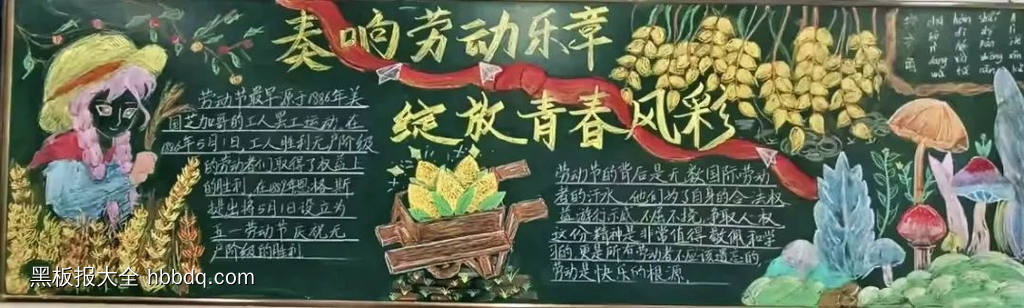 奏响劳动乐章
绽放青春风彩
劳动节最早源于1886年美
国芝加哥的工人罢工运动,在
1886年5月1日,工人胜利无产阶级
的劳动者们取得了权益上
的胜利,在1889年恩格斯
提出将5月1日设立为
五一劳动节庆祝无
产阶级的胜利
劳动节的背后是无数国际劳动
者的汗水,他们为了自身的合法权
益游行示威,不屈不挠,争取人权
这份精神是非常值得敬佩和学
习的,更是所有劳动者不应该遗忘的,
劳动是快乐的根源.
黑板报大全 hbbdq.com